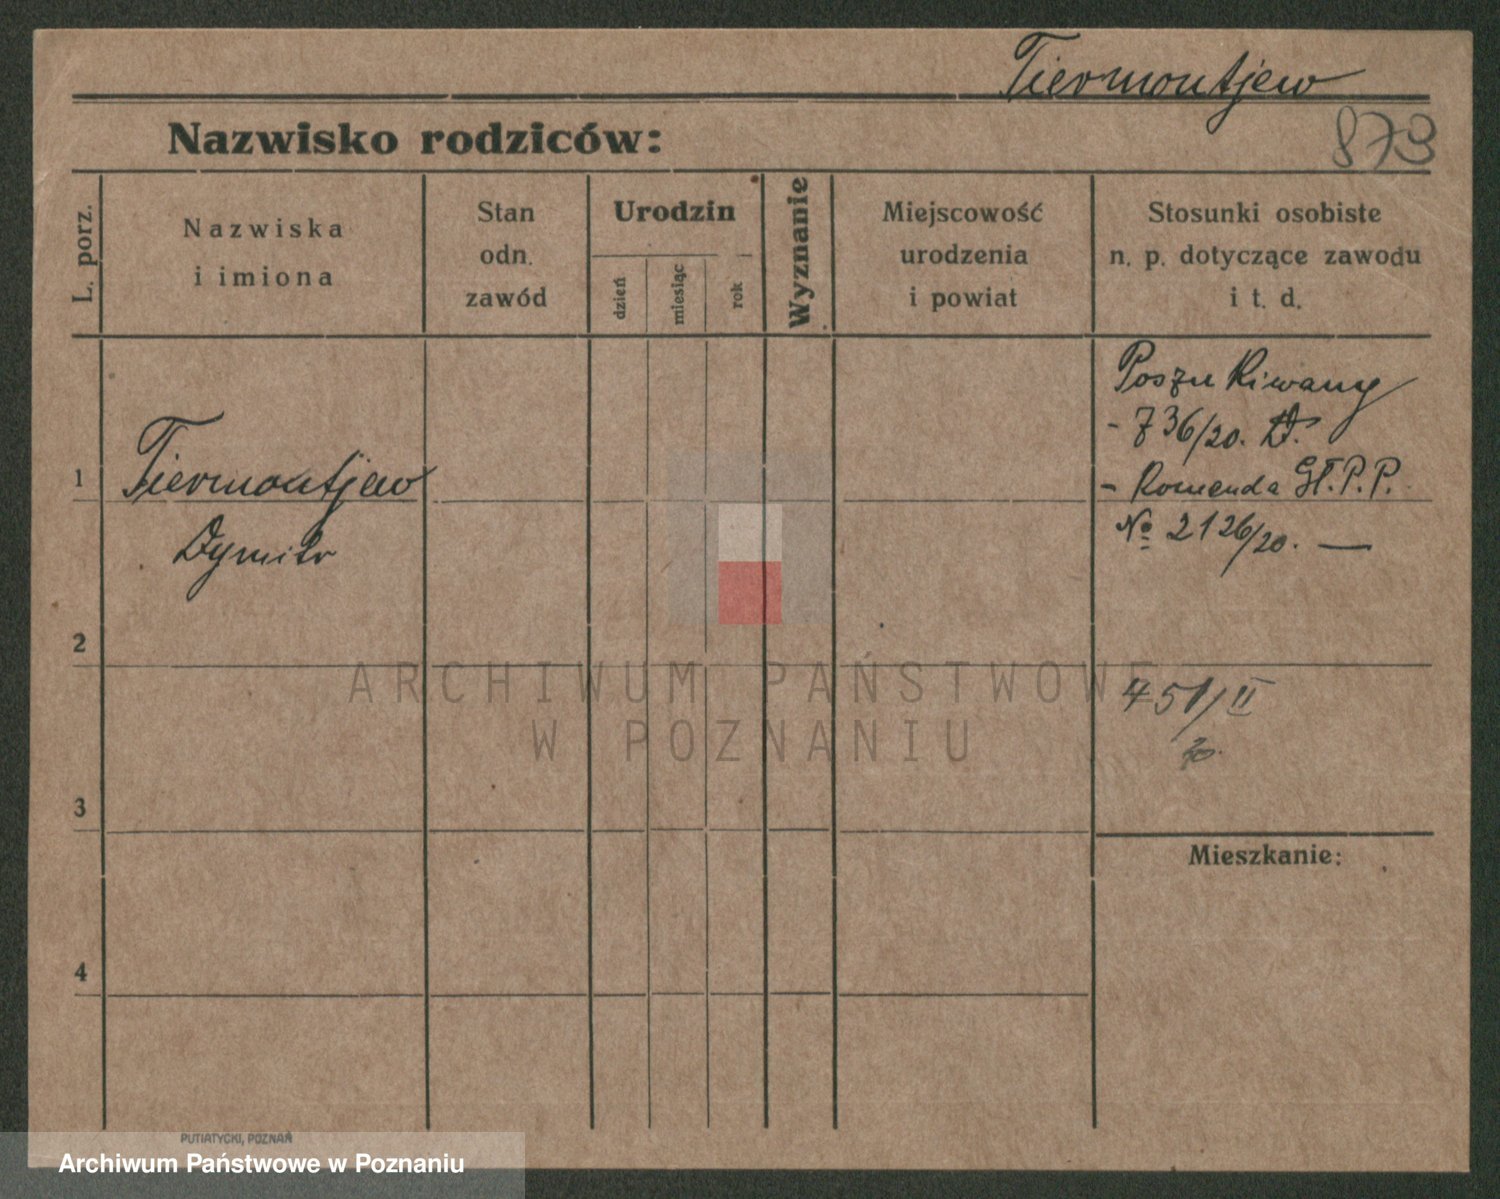 Tiermontjew
Nazwisko rodziców:
873
L. porz.
Nazwiska
i imiona
Stan
odn.
zawód
Urodzin
dzień
miesiąc
rok
Wyznanie
Miejscowość
urodzenia
i powiat
Stosunki osobiste
n. p. dotyczące zawodu
i t. d.
1
Tiermontjew
Dymitr
Poszukiwany
- 736/20. D.
- Komenda Gł. P. P.
№ 2126/20. —
2
451/II
20.
3
Mieszkanie:
4
ARCHIWUM PAŃSTWOWE
W POZNANIU
PUTIATYCKI, POZNAŃ
Archiwum Państwowe w Poznaniu